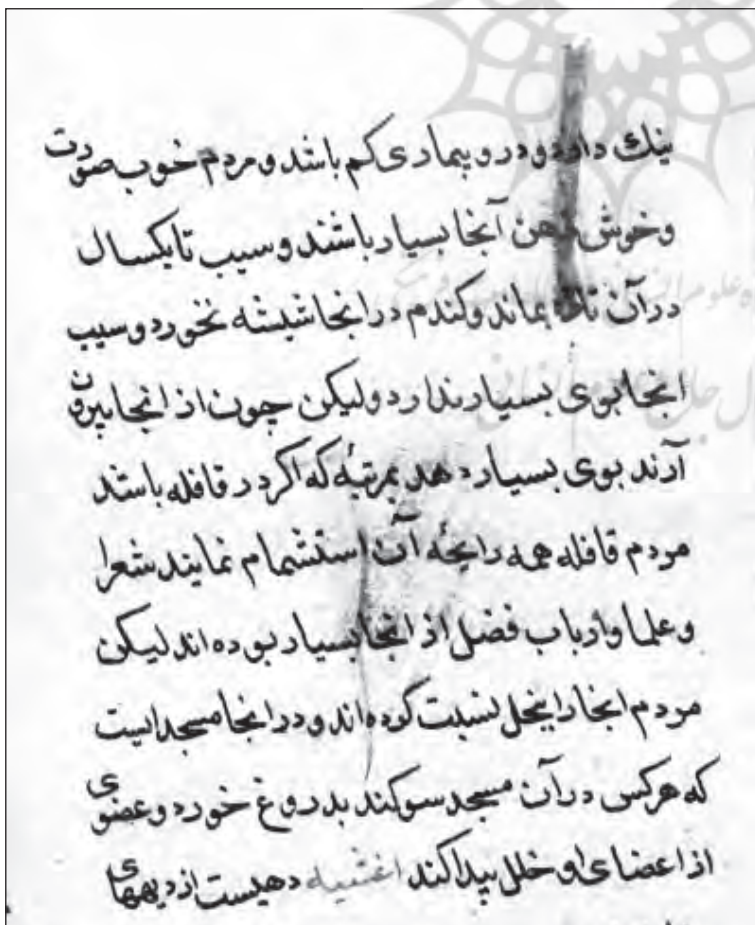 نیك دارد و در و بیماری کم باشد و مردم خوب صورت
و خوش ذهن آنجا بسیار باشند و سیب تا یکسال
در آن تازه بماند و کندم در انجا شیشه نخورد و سیب
انجا بوی بسیار ندارد ولیکن چون از انجا بیرون
آرند بوی بسیار دهد بمرتبهٔ که اکر در قافله باشد
مردم قافله همه رایحهٔ آن استشمام نمایند شعرا
و علما و ارباب فضل از انجا بسیار بوده اند لیکن
مردم انجا را بخل نسبت کرده اند و در انجا مسجد است
که هرکس در آن مسجد سوکند بدروغ خورد و عضوی
از اعضای او خلل پیدا کند اغشیه دهیست از دیههای